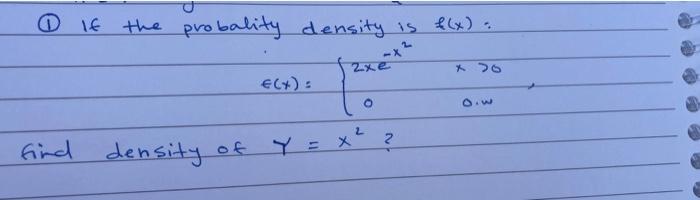 ① If the probality density is f(x) :
f(x) = { 2xe^{-x^2} x > 0
0 o.w ,
find density of Y = x^2 ?